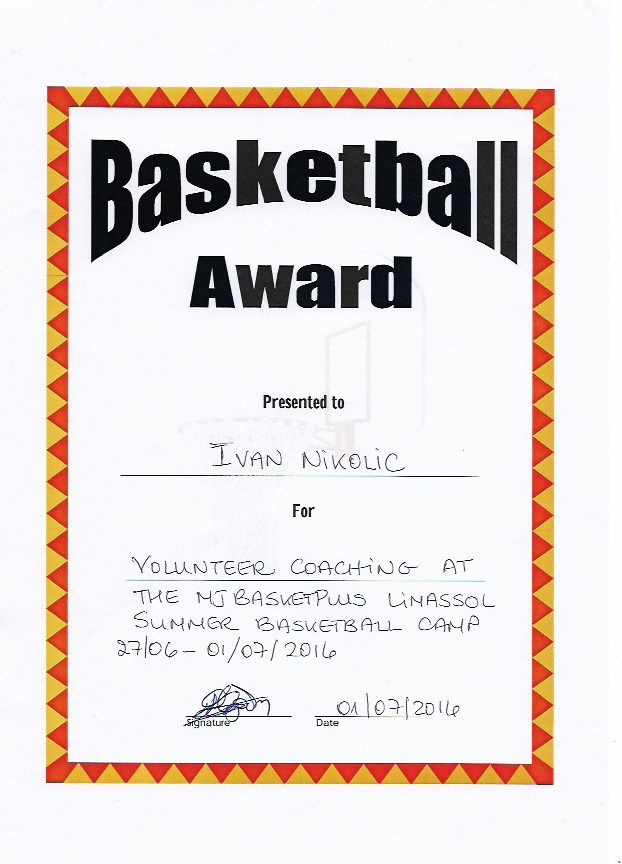 Basketball
Award
Presented to
IVAN NIKOLIC
For
VOLUNTEER COACHING AT
THE MJ BASKETPLUS LIMASSOL
SUMMER BASKETBALL CAMP
27/06 - 01/07/2016
01/07/2016
Signature Date